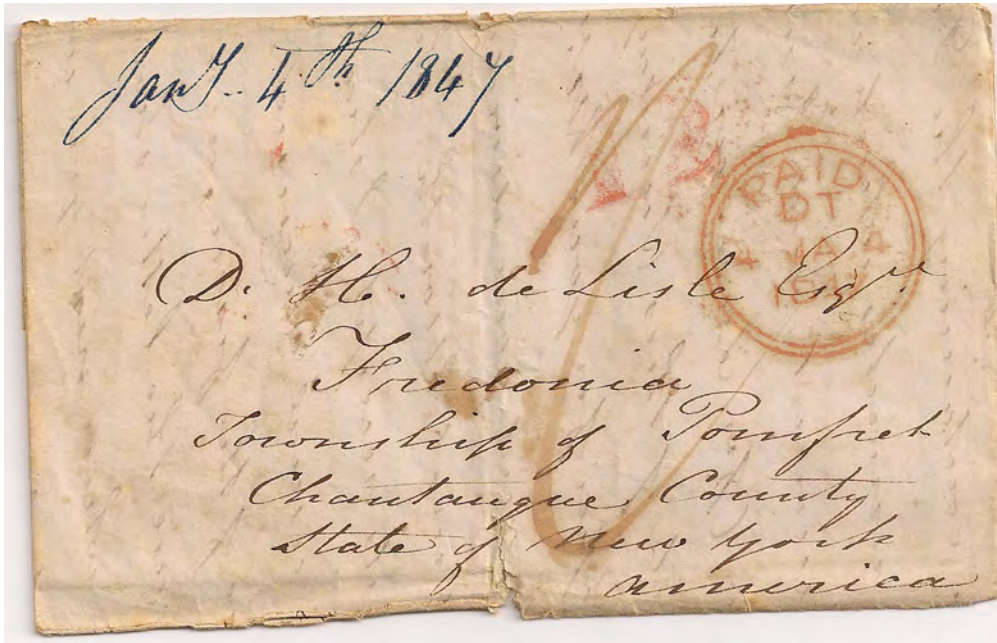 Jany. 4th 1847
12
PAID
DT
4 JA 4
1847
D. H. de Lisle Esqre.
Fredonia
Township of Pomfret
Chautauque County
State of New York
America